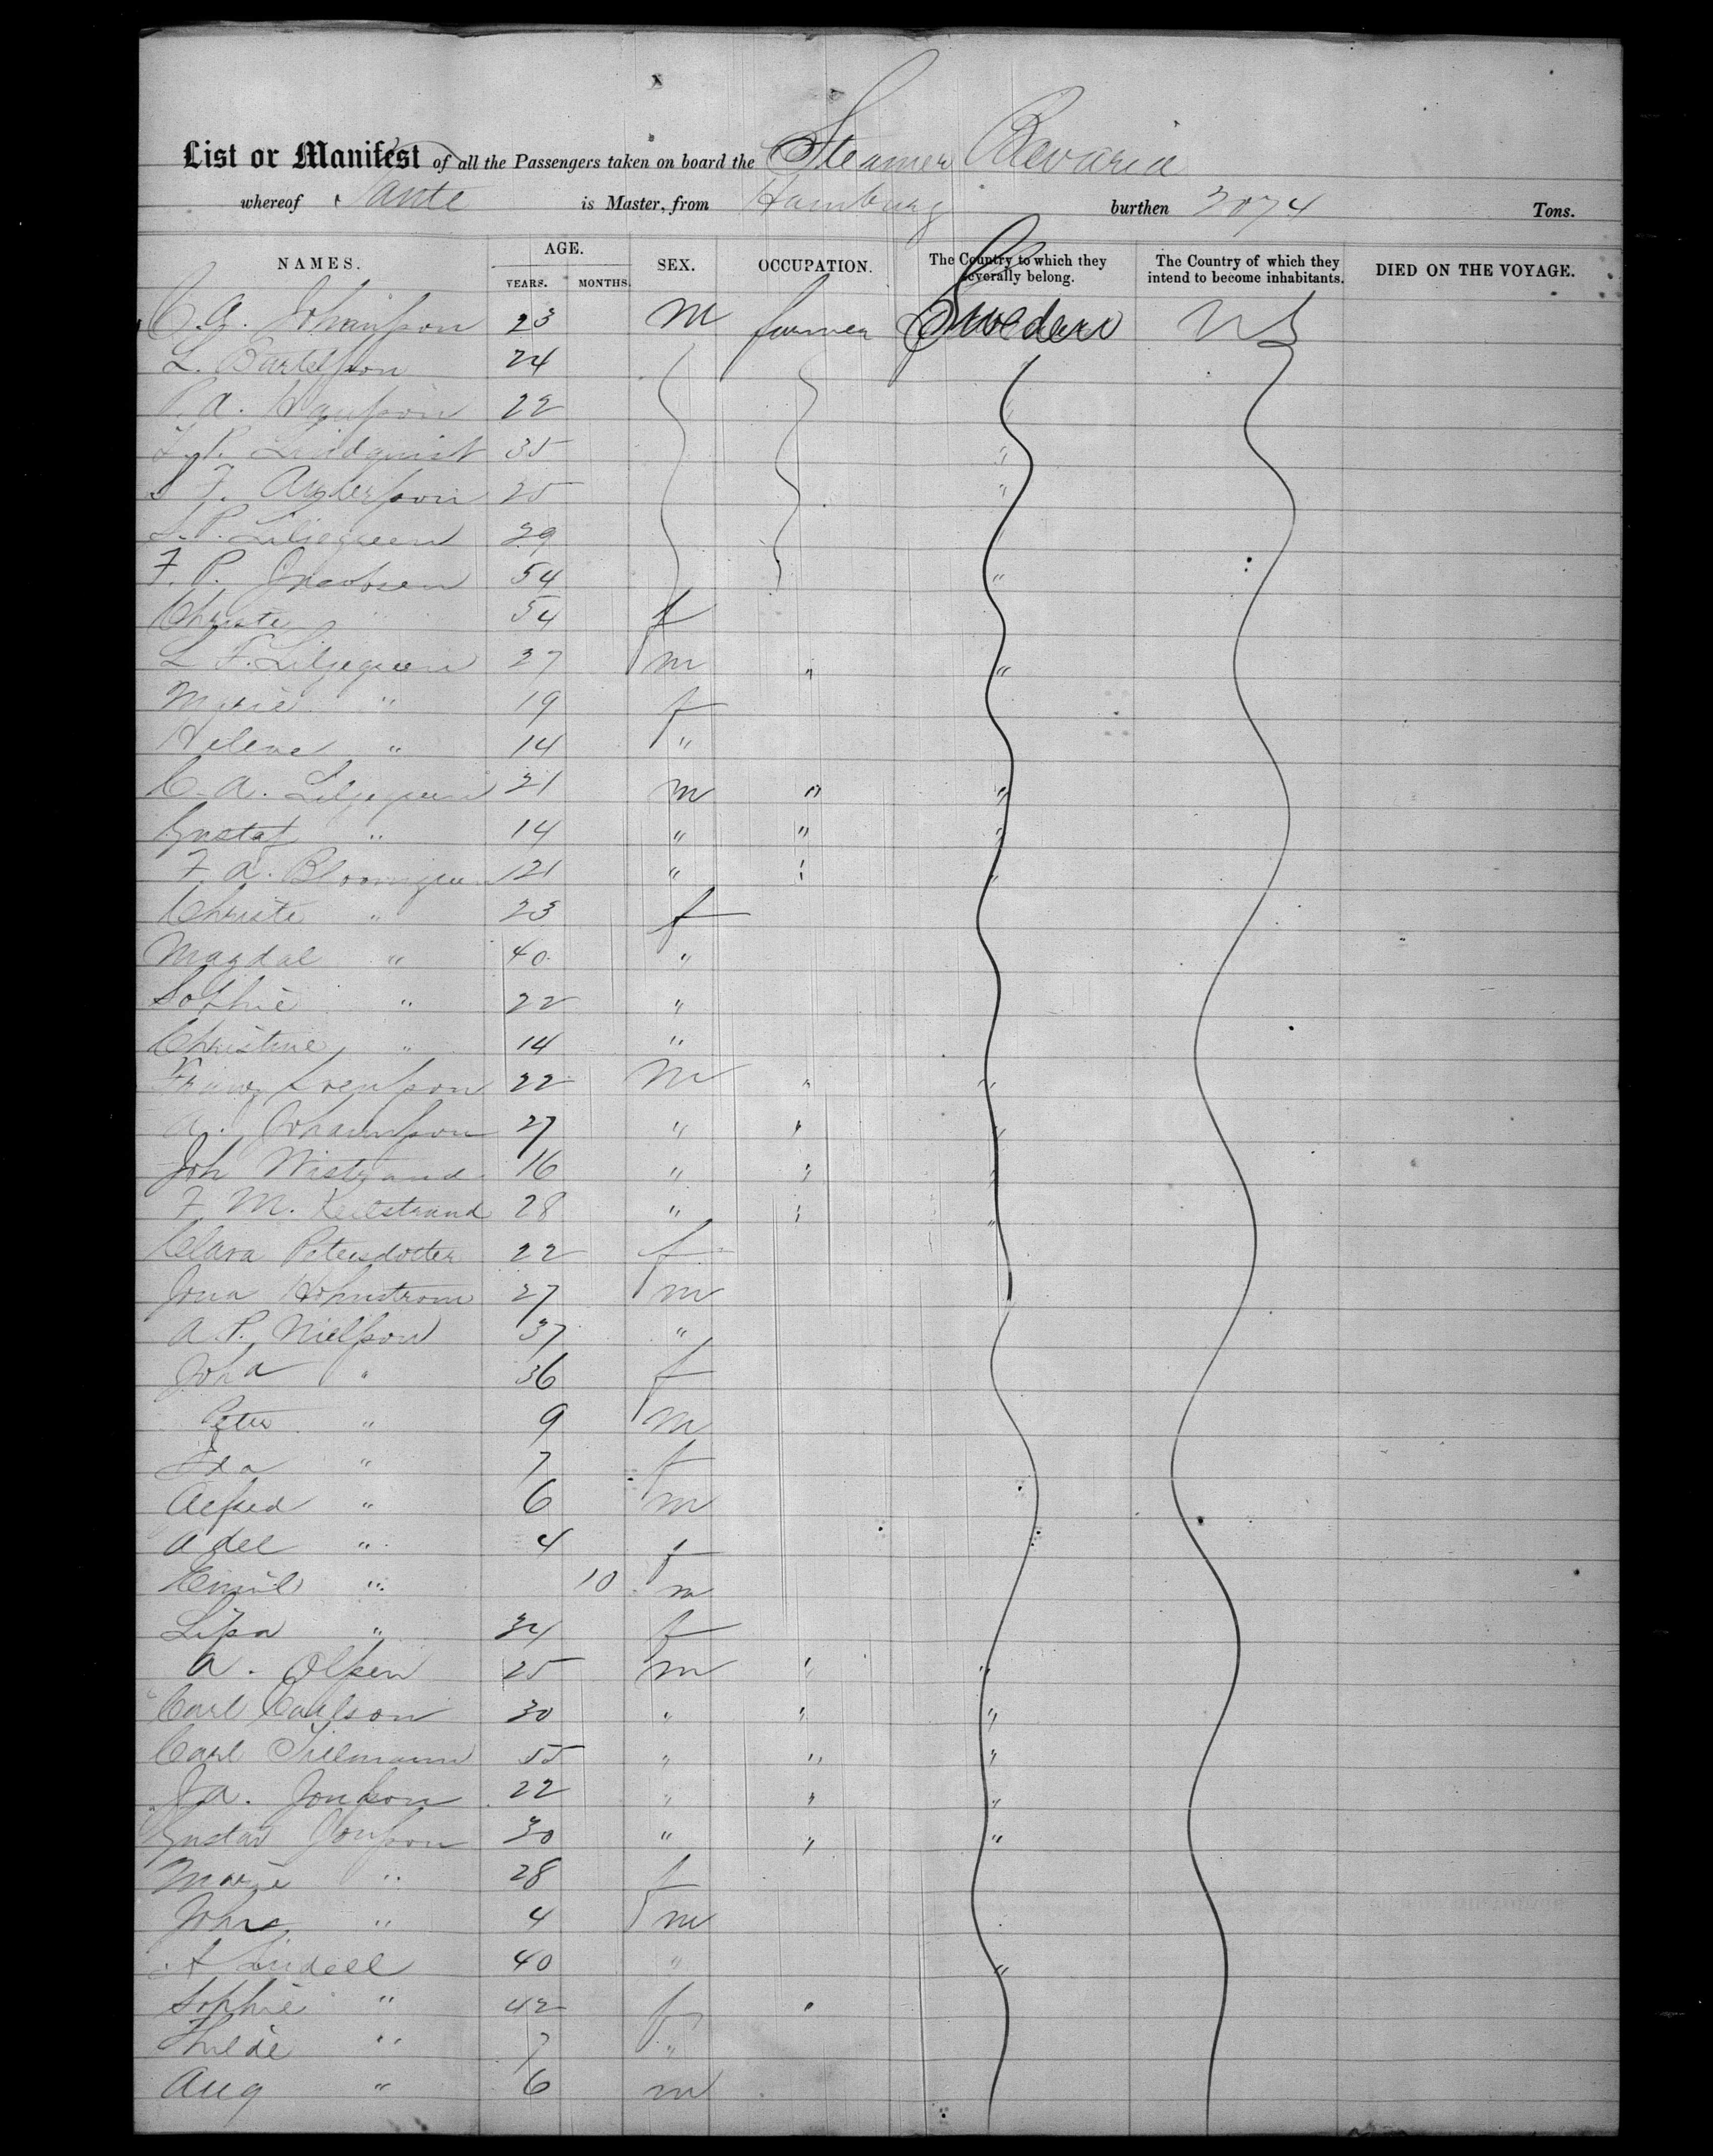 List or Manifest of all the Passengers taken on board the Steamer Bavaria
whereof Taube is Master, from Hamburg burthen 2074 Tons.
NAMES. AGE. YEARS. MONTHS. SEX. OCCUPATION. The Country to which they severally belong. The Country of which they intend to become inhabitants. DIED ON THE VOYAGE.
C. G. Johansson 23 m farmer Sweden US
L. Bartelsson 24
P. A. Hansson 22
P. Lindquist 35
F. Andersson 25
S. P. Liljegreen 29
F. P. Jacobsen 54
Christe 54 f
L F. Liljegreen 27 m " "
Marie " 19 f
Helene " 14 "
C. A. Liljegreen 21 m " "
Gustaf " 14 " " "
F. A. Bloomgreen 21 " " "
Christe " 23 f
Magdal " 40 "
Sophie " 22 "
Christine " 14 "
Franz Svensson 22 m " "
A. Johannsson 27 " " "
Joh Wistrand 16 " " "
F. M. Keilstrand 28 " " "
Clara Petersdotter 22 f
Jona Holmstrom 27 m
A. P. Nielsson 37 "
Joha " 36 f
Peter " 9 m
Ida " 7 f
Alfred " 6 m
Adel " 4 f
Emil " 10 m
Lisa " 34 f
A. Olsen 25 m " "
Carl Carlson 30 " " "
Carl Tillmann 55 " " "
J A. Jonsson 22 " " "
Gustav Jonsson 30 " " "
Marie " 28 f
Johs. " 4 m
A Lindell 40 " "
Sophie " 42 f
Thilde " 7 "
Aug " 6 m